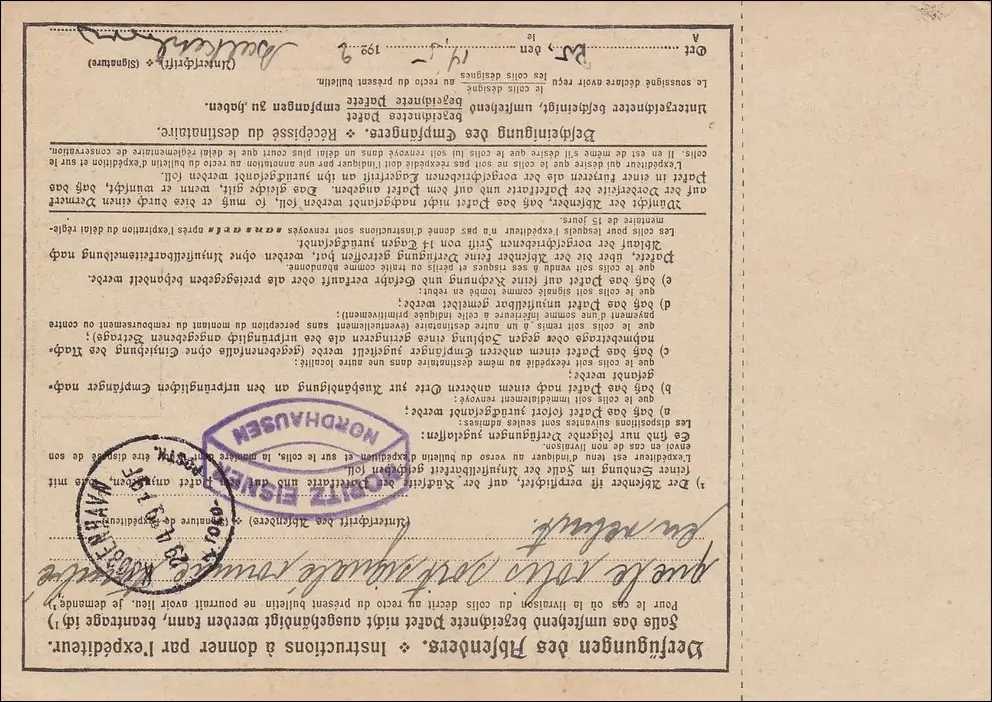 Verfügungen des Absenders. ❖ Instructions à donner par l'expéditeur.
Falls das umstehend bezeichnete Paket nicht ausgehändigt werden kann, beantrage ich ¹)
Pour le cas où la livraison du colis décrit au recto du présent bulletin ne pourrait avoir lieu, je demande¹)
que le colis soit signalé comme tombé
en rebut.
(Unterschrift des Absenders) ❖ (Signature de l'expéditeur)
MORITZ EISNER
NORDHAUSEN
KJØBENHAVN
29.4.29
¹) Der Absender ist verpflichtet, auf der Rückseite der Paketkarte und auf dem Paket anzugeben, was mit
seiner Sendung im Falle der Unzustellbarkeit geschehen soll.
L'expéditeur est tenu d'indiquer au verso du bulletin d'expédition et sur le colis, la manière dont il doit être disposé de son
envoi en cas de non livraison.
Es sind nur folgende Verfügungen zugelassen:
Les dispositions suivantes sont seules admises:
a) daß das Paket sofort zurückgesandt werde;
que le colis soit immédiatement renvoyé;
b) daß das Paket nach einem anderen Orte zur Aushändigung an den ursprünglichen Empfänger nach-
gesandt werde;
que le colis soit réexpédié au même destinataire dans une autre localité;
c) daß das Paket einem anderen Empfänger zugestellt werde (gegebenenfalls ohne Einziehung des Nach-
nahmebetrags oder gegen Zahlung eines geringeren als des ursprünglich angegebenen Betrags);
que le colis soit remis à un autre destinataire (éventuellement sans perception du montant du remboursement ou contre
payement d'une somme inférieure à celle indiquée primitivement);
d) daß das Paket unzustellbar gemeldet werde;
que le colis soit signalé comme tombé en rebut;
e) daß das Paket auf seine Rechnung und Gefahr verkauft oder als preisgegeben behandelt werde.
que le colis soit vendu à ses risques et périls ou traité comme abandonné.
Pakete, über die der Absender keine Verfügung getroffen hat, werden ohne Unzustellbarkeitsmeldung nach
Ablauf der vorgeschriebenen Frist von 14 Tagen zurückgesandt.
Les colis pour lesquels l'expéditeur n'a pas donné d'instructions sont renvoyés sans avis après l'expiration du délai régle-
mentaire de 15 jours.
Wünscht der Absender, daß das Paket nicht nachgesandt werden soll, so muß er dies durch einen Vermerk
auf der Vorderseite der Paketkarte und auf dem Paket angeben. Das gleiche gilt, wenn er wünscht, daß das
Paket in einer kürzeren als der vorgeschriebenen Lagerfrist an ihn zurückgesandt werden soll.
L'expéditeur qui désire que le colis ne soit pas réexpédié doit l'indiquer par une annotation au recto du bulletin d'expédition et sur le
colis. Il en est de même s'il désire que le colis lui soit renvoyé dans un délai plus court que le délai réglementaire de conservation.
Bescheinigung des Empfängers. ❖ Récépissé du destinataire.
Unterzeichneter bescheinigt, umstehend bezeichnetes Paket / bezeichnete Pakete empfangen zu haben.
Le soussigné déclare avoir reçu le colis désigné / les colis désignés au recto du présent bulletin.
(Unterschrift) ❖ (Signature)
Ort
A
, den
le
14/5 1929